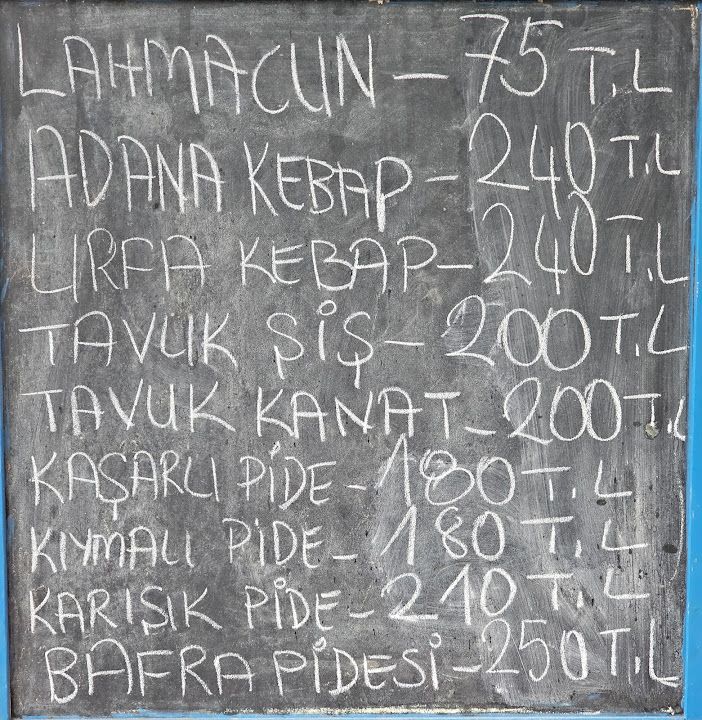 LAHMACUN - 75 T.L
ADANA KEBAP - 240 T.L
URFA KEBAP - 240 T.L
TAVUK ŞİŞ - 200 T.L
TAVUK KANAT - 200 T.L
KAŞARLI PİDE - 180 T.L
KIYMALI PİDE - 180 T.L
KARIŞIK PİDE - 210 T.L
BAFRA PİDESİ - 250 T.L